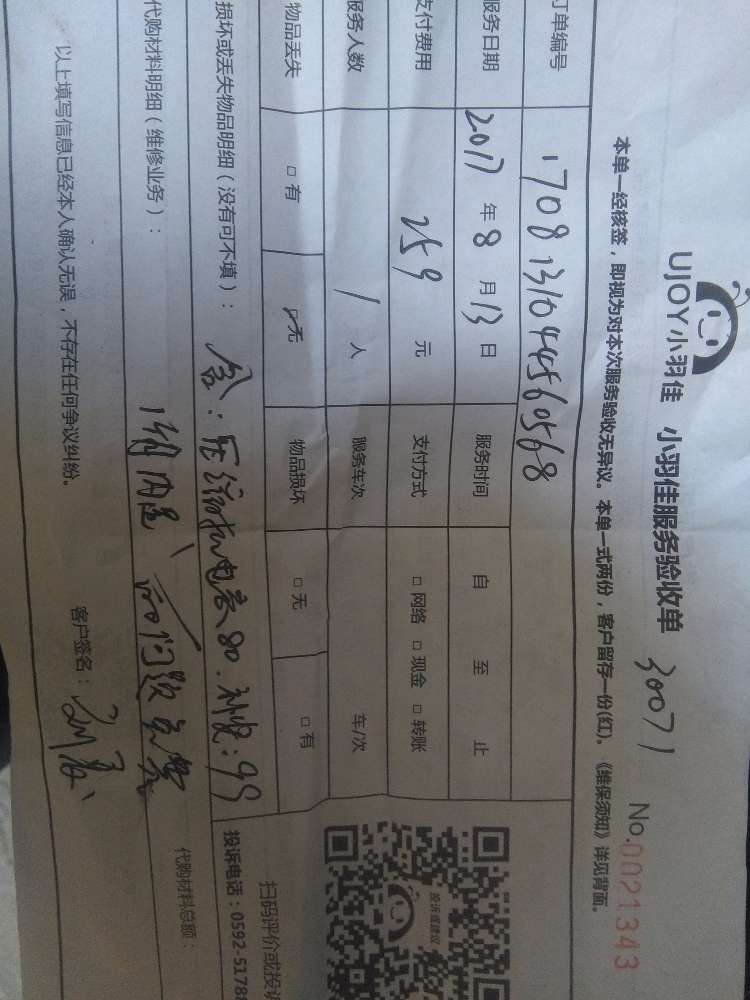 UJOY小羽佳 小羽佳服务验收单 30071 No.0021343
本单一经核签，即视为对本次服务验收无异议。本单一式两份，客户留存一份(红)。《维保须知》详见背面。
订单编号 1708131044560568
服务日期 2017 年 8 月 13 日 服务时间 自 至 止
支付费用 259 元 支付方式 □网络 □现金 □转账
服务人数 1 人 服务车次 车/次
物品丢失 □有 ☑无 物品损坏 □无 □有
损坏或丢失物品明细（没有可不填）：
80.补 : 99
代购材料明细（维修业务）：
1年内
代购材料总额：
以上填写信息已经本人确认无误，不存在任何争议纠纷。
客户签名：
投诉或建议
扫码评价或投诉
投诉电话：0592-5178